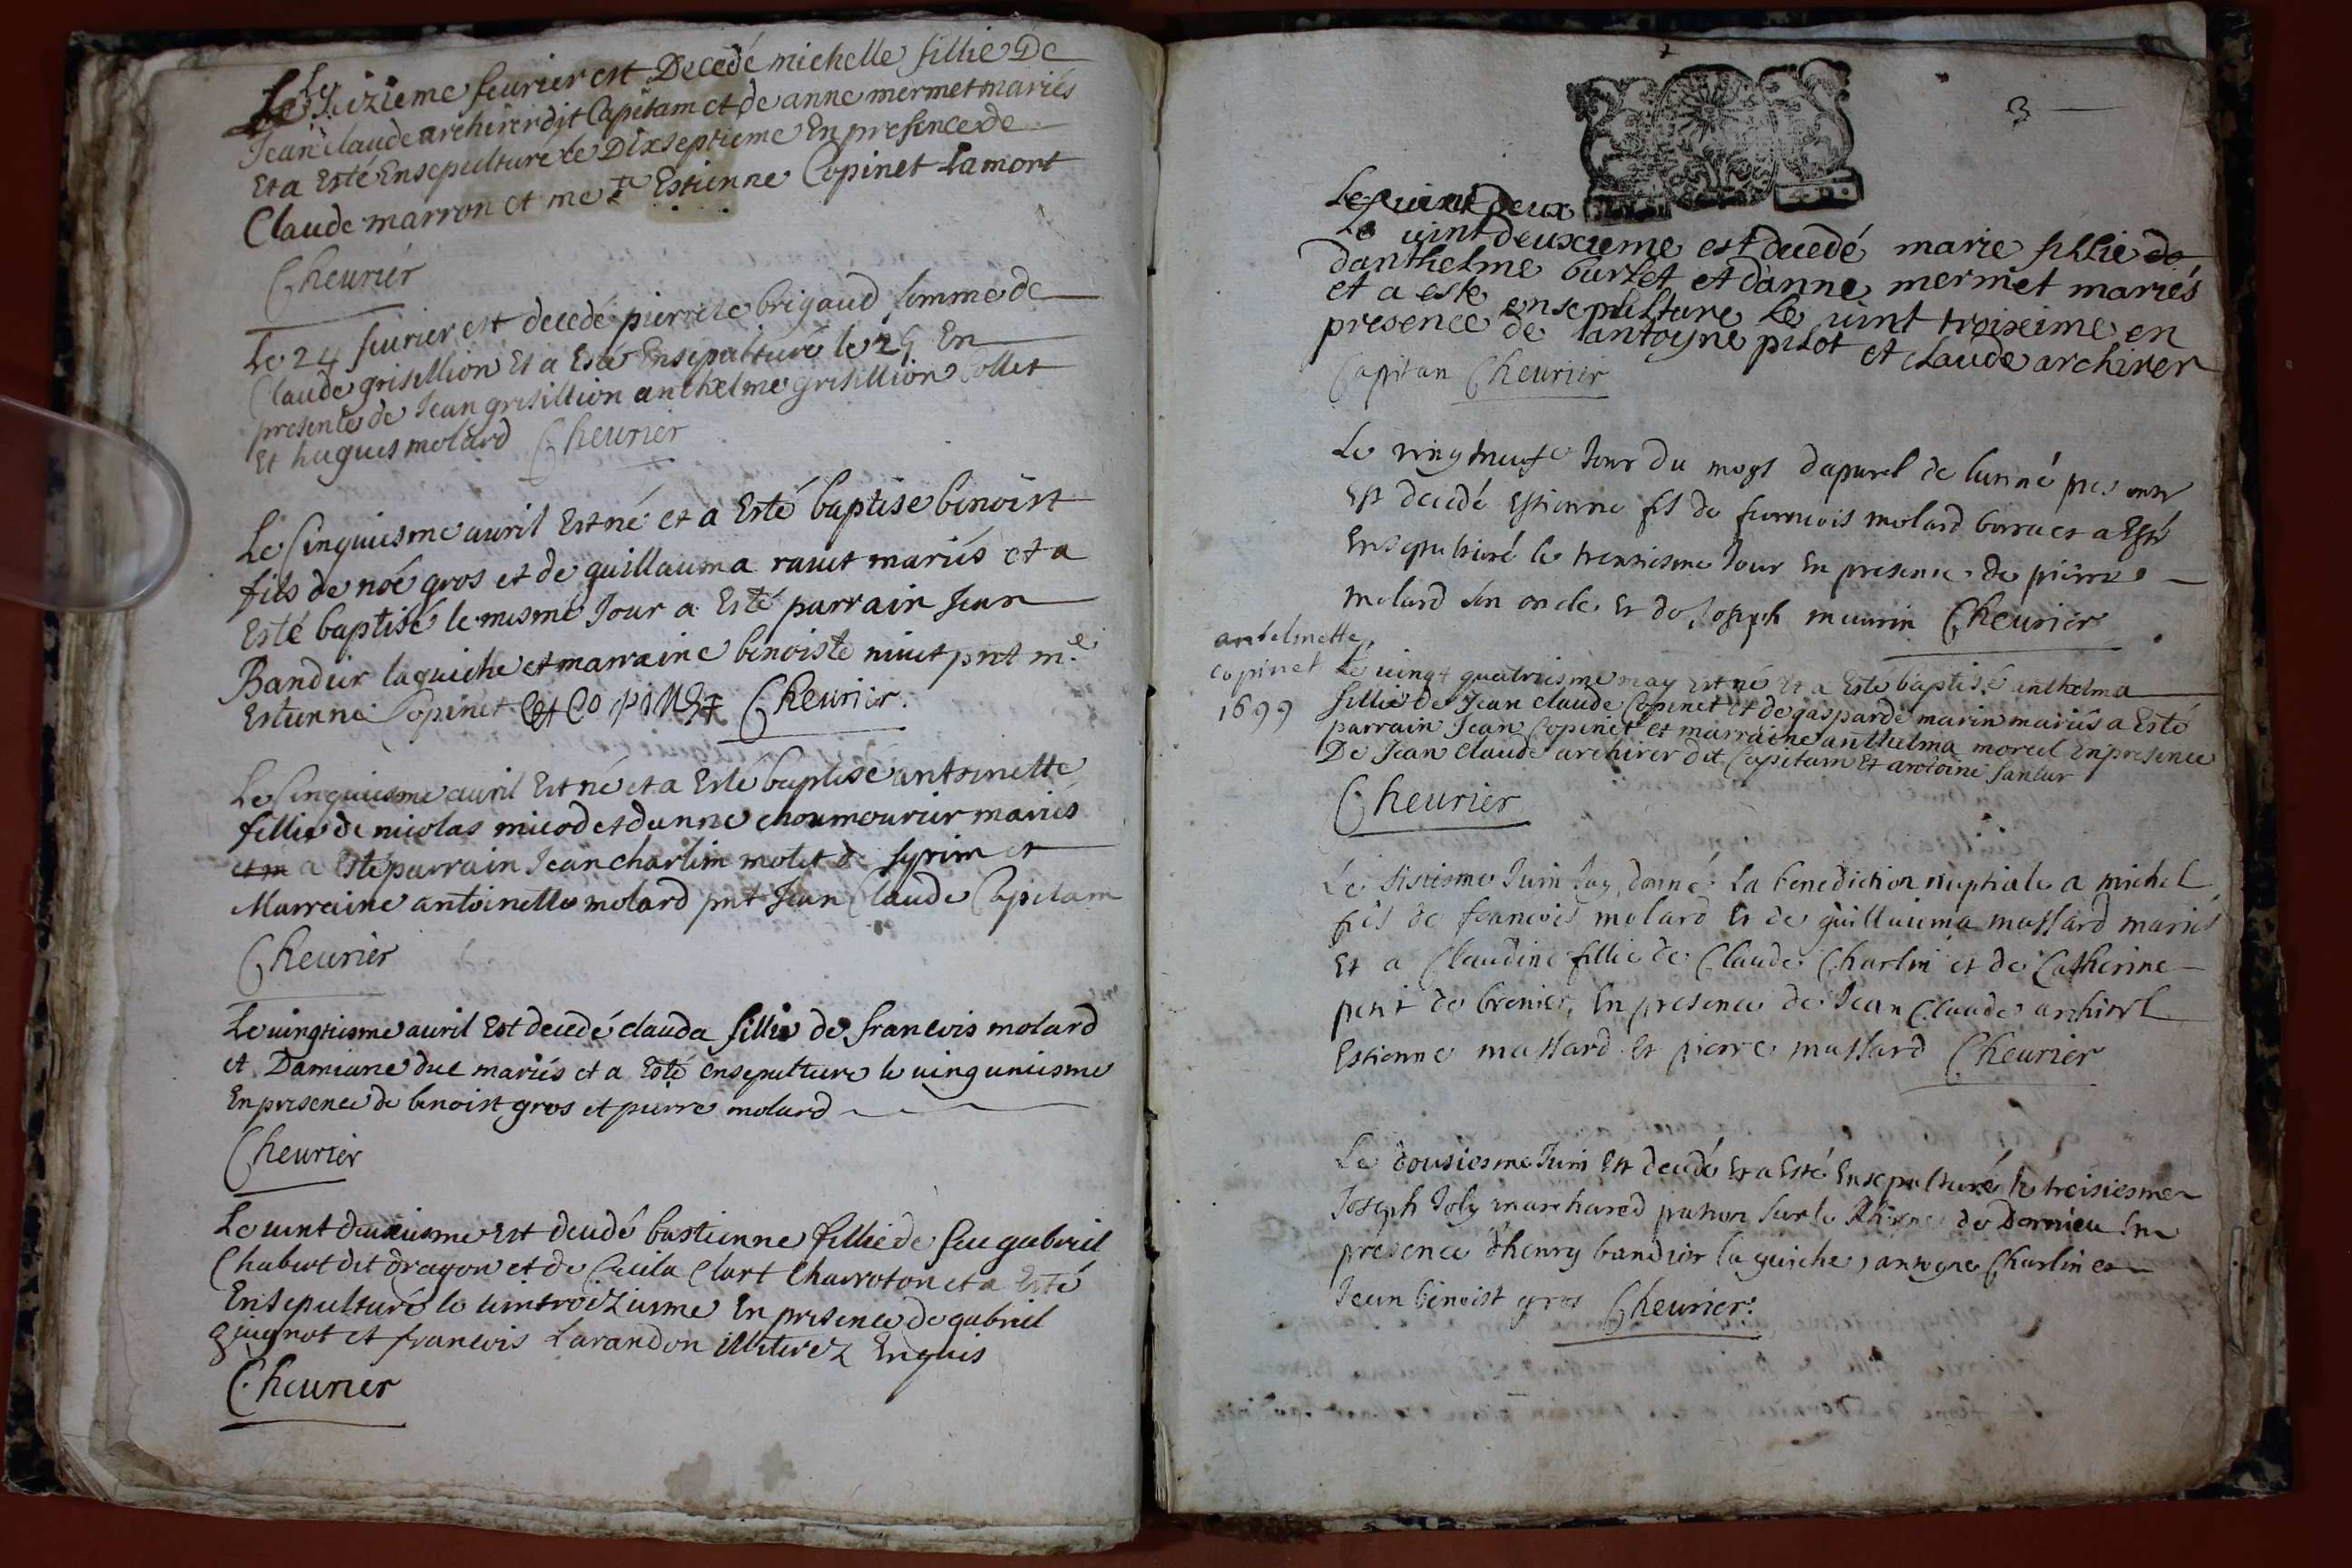 Le seizieme feurier est Decedé michelle fillie De
Jean claude archirer dit Capitam et de anne mermet mariés
Et a Esté Ensepulturé le Dixseptieme En presence de
Claude marron et me Estienne Copinet Lamort
Cheurier
Le 24 feurier est decedé pierrete brigaud femme de
Claude grisillion Et a Esté Ensepulturé le 25 En
presence de Jean grisillion anthelme grisillion Collet
Et hugues molard Cheurier
Le Cinquiesme auril Est né et a Esté baptise benoist
fils de noé gros et de guillauma rauet mariés et a
Esté baptisé le mesme Jour a Esté parrain Jean
Bandier laguiche et marraine benoiste niuet pnt me
Estienne Copinet et CopineT Cheurier.
Le Cinquiesme auril Est né et a Esté baptisé antoinette
fillie de nicolas micod et danne choumourier mariés
a Esté parrain Jean charlin molet de syrin et
Marraine antoinette molard pnt Jean Claude Capitam
Cheurier
Le uingtiesme auril Est decedé clauda fillie de francois molard
et Damiane duc mariés et a Esté ensepulture le uing uniesme
En presence de benoist gros et pierre molard
Cheurier
Le uint deuxiesme est decedé bastienne fillie de feu gabriel
Chabert dit dragon et de Cecila Clart Charroton et a Esté
Ensepulturé le uintroiziesme En presence de gabriel
guignot et francois Larandon illiterez Enquis
Cheurier
3
Le uint deux
Le uint deuxieme est decedé marie fillie de
danthelme burlet et danne mermet mariés
et a esté ensepulture Le uint troixeime en
presence de lantoyne pilot et claude archirer
Capitan Cheurier
Le vingt neufe Jour du moys dapurel de lanné presente
Est decedé Estienne fils de francois molard et a Esté
Ensepulturé le trentiesme Jour En presence de pierre
molard son oncle Et de Joseph meurin Cheurier
antelmette
copinet
1699
Le uingt quatriesme may Est né Et a Esté baptisé anthelma
fillie de Jean claude Copinet et de gasparde marin mariés a Esté
parrain Jean Copinet et marraine anthelma morel En presence
De Jean claude archirer dit Capitam Et antoine
Cheurier
Le sisiesme Juin Jay donné La benediction nuptiale a michel
fils de francois molard Et de guillauma massard mariés
Et a Claudine fillie de Claude Charlin et de Catherine
petit de brenier, En presence de Jean Claude archirel
Estienne massard Et pierre massard Cheurier
Le dousiesme Juin Est decedé Et a Esté Ensepulturé le treisiesme
Joseph Joly marchand patron sur le Rhosne de Dornieu En
presence dhenry bandier laguiche, antoyne Charlin et
Jean benoist gros Cheurier.